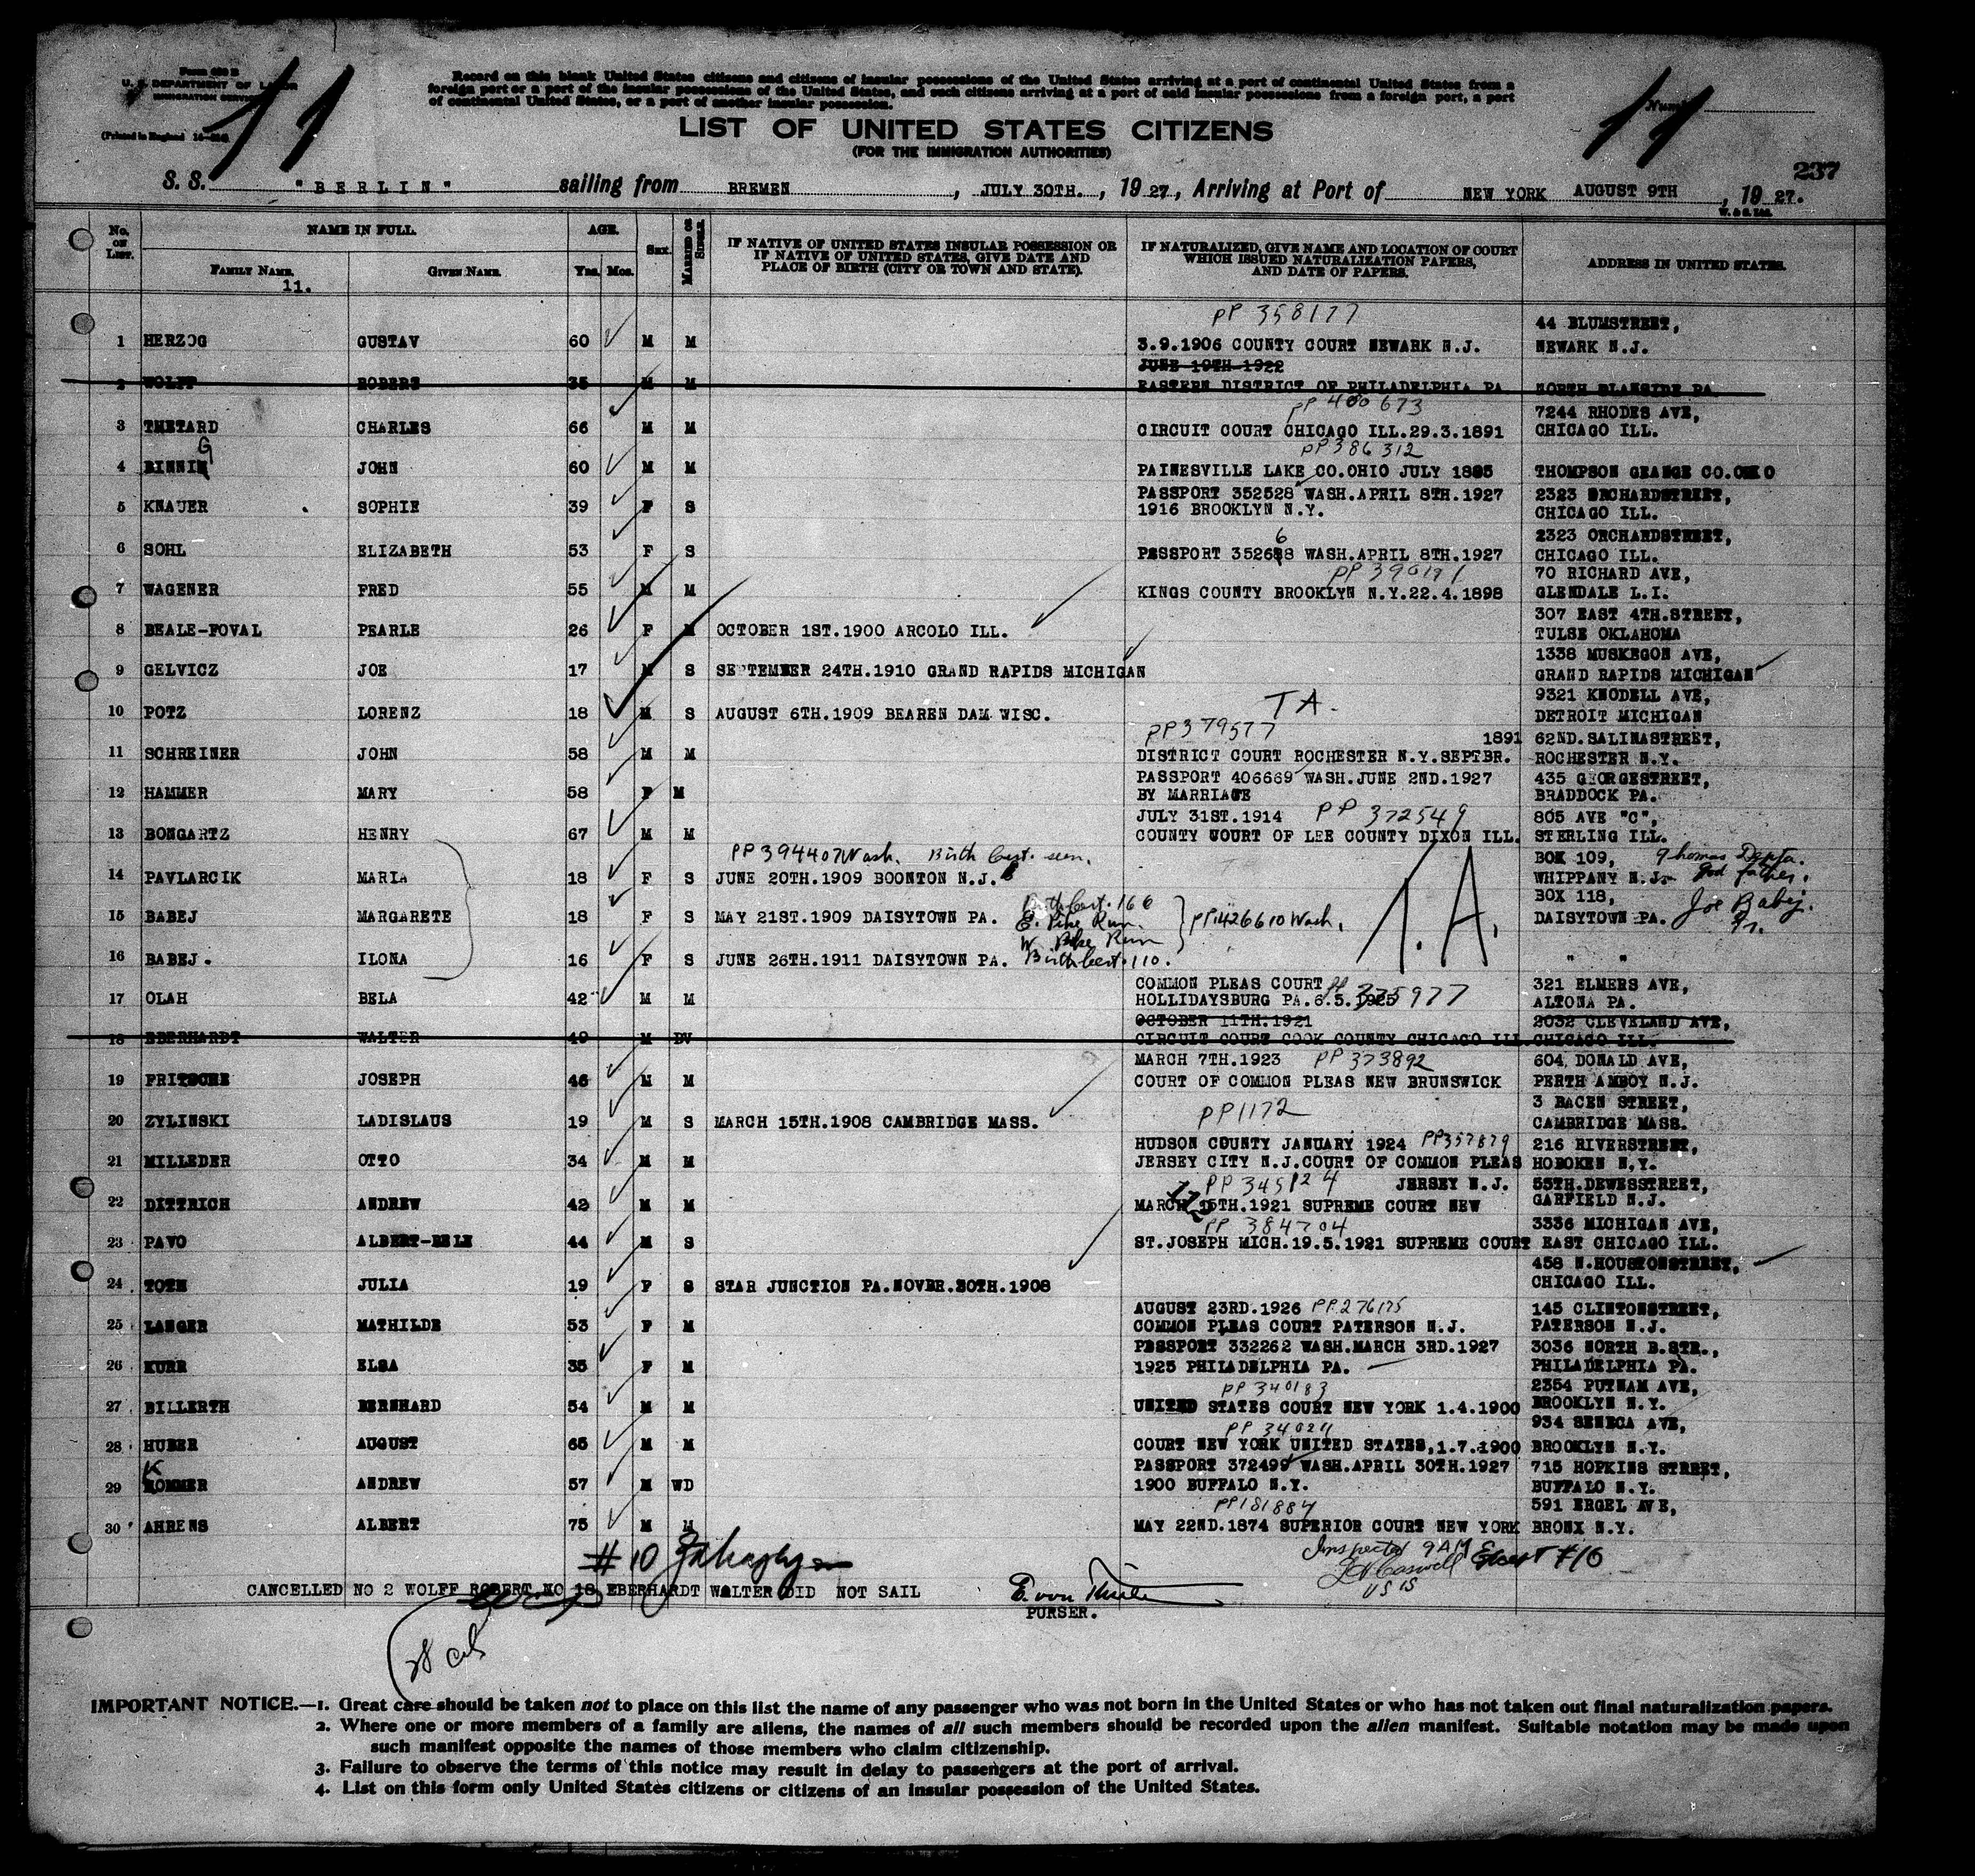 Form 630 B
U. S. DEPARTMENT OF LABOR
IMMIGRATION SERVICE
(Printed in England
11
Record on this blank United States citizens and citizens of insular possessions of the United States arriving at a port of continental United States from a
foreign port or a port of the insular possessions of the United States, and such citizens arriving at a port of said insular possessions from a foreign port, a port
of continental United States, or a port of another insular possession.
11
LIST OF UNITED STATES CITIZENS
(FOR THE IMMIGRATION AUTHORITIES)
237
S. S. "BERLIN" sailing from BREMEN, JULY 30TH., 1927, Arriving at Port of NEW YORK AUGUST 9TH, 1927.
No. ON LIST. NAME IN FULL. AGE. SEX. MARRIED OR SINGLE. IF NATIVE OF UNITED STATES INSULAR POSSESSION OR IF NATIVE OF UNITED STATES, GIVE DATE AND PLACE OF BIRTH (CITY OR TOWN AND STATE). IF NATURALIZED, GIVE NAME AND LOCATION OF COURT WHICH ISSUED NATURALIZATION PAPERS, AND DATE OF PAPERS. ADDRESS IN UNITED STATES.
FAMILY NAME. GIVEN NAME. Yrs. Mos.
11.
PP 358177 44 BLUMSTREET,
1 HERZOG GUSTAV 60 M M 3.9.1906 COUNTY COURT NEWARK N.J. NEWARK N.J.
JUNE 19TH 1922
2 WOLFF ROBERT 35 M M EASTERN DISTRICT OF PHILADELPHIA PA NORTH BLANSIDE PA
PP 480673 7244 RHODES AVE,
3 THETARD CHARLES 66 M M CIRCUIT COURT CHICAGO ILL.29.3.1891 CHICAGO ILL.
PP386312
4 BINNIG JOHN 60 M M PAINESVILLE LAKE CO.OHIO JULY 1885 THOMPSON GEANGE CO.OHIO
PASSPORT 352528 WASH.APRIL 8TH.1927 2323 ORCHARDSTREET,
5 KNAUER SOPHIE 39 F S 1916 BROOKLYN N.Y. CHICAGO ILL.
6 2323 ORCHARDSTREET,
6 SOHL ELIZABETH 53 F S PASSPORT 352688 WASH.APRIL 8TH.1927 CHICAGO ILL.
PP390191 70 RICHARD AVE,
7 WAGENER FRED 55 M M KINGS COUNTY BROOKLYN N.Y.22.4.1898 GLENDALE L.I.
307 EAST 4TH.STREET,
8 BEALE-FOVAL PEARLE 26 F M OCTOBER 1ST.1900 ARCOLO ILL. TULSE OKLAHOMA
1338 MUSKEGON AVE,
9 GELVICZ JOE 17 M S SEPTEMBER 24TH.1910 GRAND RAPIDS MICHIGAN GRAND RAPIDS MICHIGAN
9321 KNODELL AVE,
10 POTZ LORENZ 18 M S AUGUST 6TH.1909 BEAREN DAM WISC. TA. DETROIT MICHIGAN
PP379577 1891 62ND.SALINASTREET,
11 SCHREINER JOHN 58 M M DISTRICT COURT ROCHESTER N.Y.SEPTBR. ROCHESTER N.Y.
PASSPORT 406669 WASH.JUNE 2ND.1927 435 GEORGESTREET,
12 HAMMER MARY 58 F M BY MARRIAGE BRADDOCK PA.
JULY 31ST.1914 PP 372549 805 AVE "C",
13 BONGARTZ HENRY 67 M M COUNTY COURT OF LEE COUNTY DIXON ILL. STERLING ILL.
PP394407 Wash. Birth Cert. seen. BOX 109, Thomas Depta.
14 PAVLARCIK MARIA 18 F S JUNE 20TH.1909 BOONTON N.J. WHIPPANY N.J. god father.
Birth Cert. 166 BOX 118,
15 BABEJ MARGARETE 18 F S MAY 21ST.1909 DAISYTOWN PA. E. Pike Run. PP426610 Wash. T.A. DAISYTOWN PA. Joe Babej. Fr.
W. Pike Run
16 BABEJ. ILONA 16 F S JUNE 26TH.1911 DAISYTOWN PA. Birth Cert. 110. " "
COMMON PLEAS COURT 321 ELMERS AVE,
17 OLAH BELA 42 M M HOLLIDAYSBURG PA.6.5.1925 PP 375977 ALTONA PA.
OCTOBER 11TH.1921 2032 CLEVELAND AVE,
18 EBERHARDT WALTER 49 M DV CIRCUIT COURT COOK COUNTY CHICAGO ILL. CHICAGO ILL.
MARCH 7TH.1923 PP373892 604 DONALD AVE,
19 FRITSCHE JOSEPH 46 M M COURT OF COMMON PLEAS NEW BRUNSWICK PERTH AMBOY N.J.
3 BACEN STREET,
20 ZYLINSKI LADISLAUS 19 M S MARCH 15TH.1908 CAMBRIDGE MASS. PP1172 CAMBRIDGE MASS.
HUDSON COUNTY JANUARY 1924 PP357879 216 RIVERSTREET,
21 MILLEDER OTTO 34 M M JERSEY CITY N.J.COURT OF COMMON PLEAS HOBOKEN N.Y.
PP 345124 JERSEY N.J. 55TH.DEWESSTREET,
22 DITTRICH ANDREW 42 M M MARCH 15TH.1921 SUPREME COURT NEW GARFIELD N.J.
PP 384704 3336 MICHIGAN AVE,
23 PAVO ALBERT-BELE 44 M S ST.JOSEPH MICH.19.5.1921 SUPREME COURT EAST CHICAGO ILL.
458 N.HOUSTONSTREET,
24 TOTH JULIA 19 F S STAR JUNCTION PA.NOVBR.30TH.1908 CHICAGO ILL.
AUGUST 23RD.1926 PP.276175 145 CLINTONSTREET,
25 LANGER MATHILDE 53 F M COMMON PLEAS COURT PATERSON N.J. PATERSON N.J.
PESSPORT 332262 WASH.MARCH 3RD.1927 3036 NORTH B.STR.,
26 KURR ELSA 35 F M 1925 PHILADELPHIA PA. PHILADELPHIA PA.
PP 340183 2354 PUTNAM AVE,
27 BILLERTH BERNHARD 54 M M UNITED STATES COURT NEW YORK 1.4.1900 BROOKLYN N.Y.
PP 340211 934 SENECA AVE,
28 HUBER AUGUST 65 M M COURT NEW YORK UNITED STATES,1.7.1900 BROOKLYN N.Y.
PASSPORT 372499 WASH.APRIL 30TH.1927 715 HOPKINS STREET,
29 KOMMER ANDREW 57 M WD 1900 BUFFALO N.Y. BUFFALO N.Y.
PP181884 591 ERGEL AVE,
30 AHRENS ALBERT 75 M M MAY 22ND.1874 SUPERIOR COURT NEW YORK BRONX N.Y.
#10 Inspected 9AM Except #10
Caswell
USIS
CANCELLED NO 2 WOLFF ROBERT NO 18 EBERHARDT WALTER DID NOT SAIL
PURSER.
IMPORTANT NOTICE.—1. Great care should be taken not to place on this list the name of any passenger who was not born in the United States or who has not taken out final naturalization papers.
2. Where one or more members of a family are aliens, the names of all such members should be recorded upon the alien manifest. Suitable notation may be made upon
such manifest opposite the names of those members who claim citizenship.
3. Failure to observe the terms of this notice may result in delay to passengers at the port of arrival.
4. List on this form only United States citizens or citizens of an insular possession of the United States.